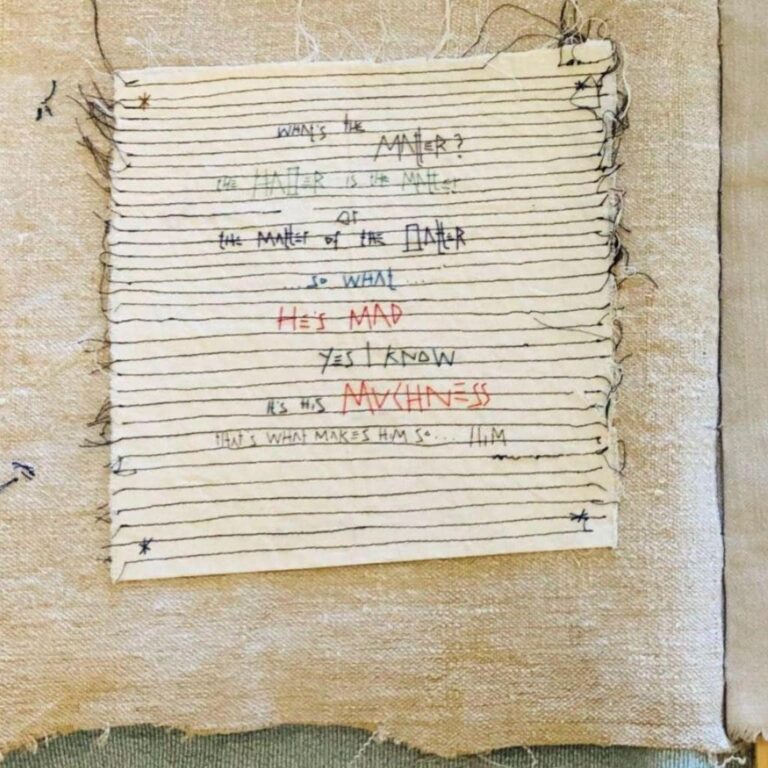 WHAT'S the
MAttER?
the HAttER is the MAttEr
or
the MAttEr of the HAttER
...so WHAt...
HE'S MAD
YES I KNOW
It's His MUCHNESS
tHAt'S WHAt MAKES HiM So.... HiM